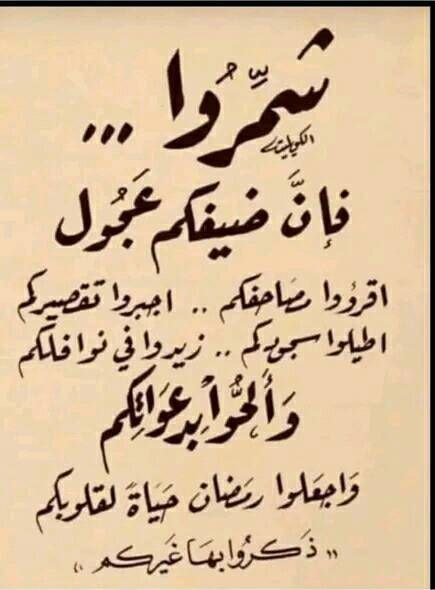 شَمِّرُوا ...
فإنَّ ضيفكم عَجُول
اقرؤوا مصَاحفكم .. اجبروا تقصيركم
اطيلوا سجودكم .. زيدوا في نوافلكم
وَألحُّوا بدعَوَاتكم
وَاجعَلوا رمضان حيَاةً لقلوبكم
"ذَكِّرُوا بهَا غَيركم"